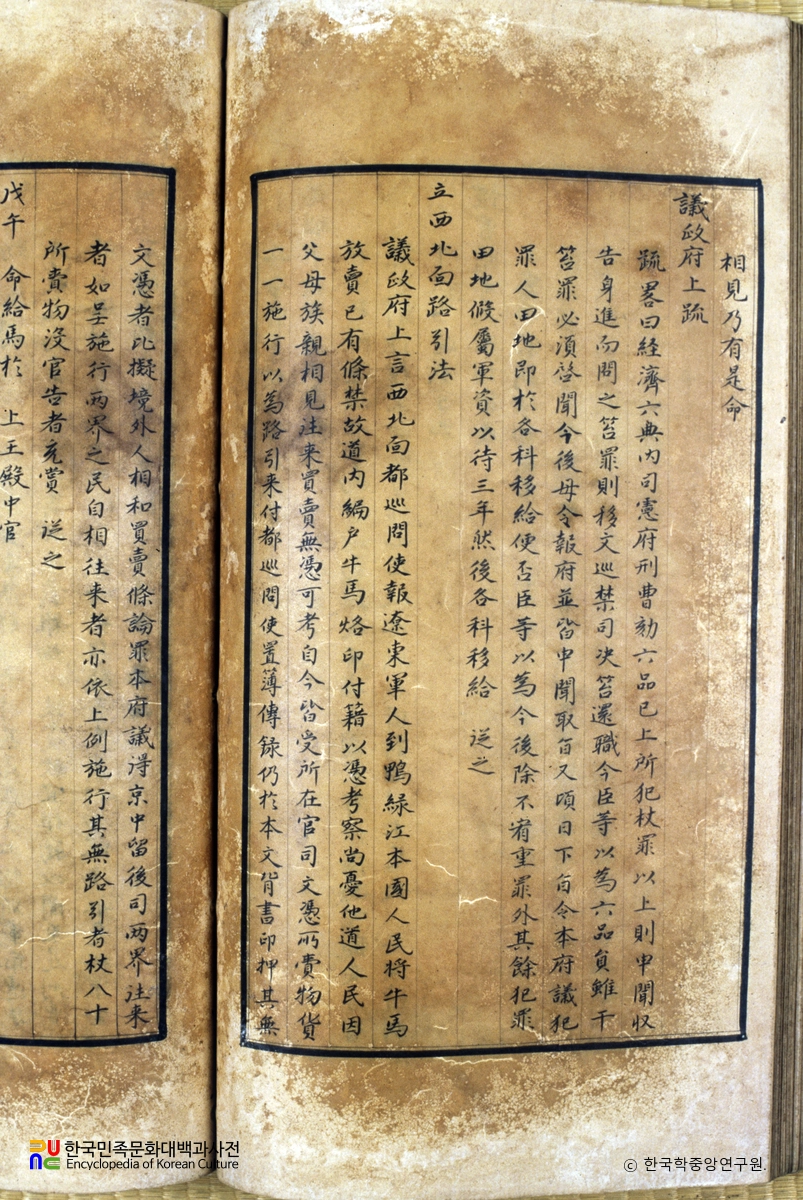 相見乃有是命
議政府上疏
疏畧曰経濟六典內司憲府刑曹劾六品已上所犯杖罪以上則申聞收
告身進而問之笞罪則移文巡禁司决笞還職今臣等以為六品員雖干
笞罪必須啓聞今後毋令報府並皆申聞取旨又頃日下旨令本府議犯
罪人田地即於各科移給便否臣等以為今後除不宥重罪外其餘犯罪
田地假屬軍資以待三年然後各科移給 從之
立西北面路引法
議政府上言西北面都巡問使報遼東軍人到鴨綠江本國人民將牛馬
放賣已有條禁故道內編戶牛馬烙印付籍以憑考察尚憂他道人民因
父母族親相見往来買賣無憑可考自今皆受所在官司文憑所賣物貨
一一施行以為路引来付都巡問使置簿傳錄仍於本文背書印押其無
文憑者比擬境外人相和買賣條論罪本府議得京中留後司兩界往来
者如呈施行兩界之民自相往来者亦依上例施行其無路引者杖八十
所賣物沒官告者充賞 從之
戊午 命給馬於 上王殿中官
한국민족문화대백과사전
Encyclopedia of Korean Culture
ⓒ 한국학중앙연구원.